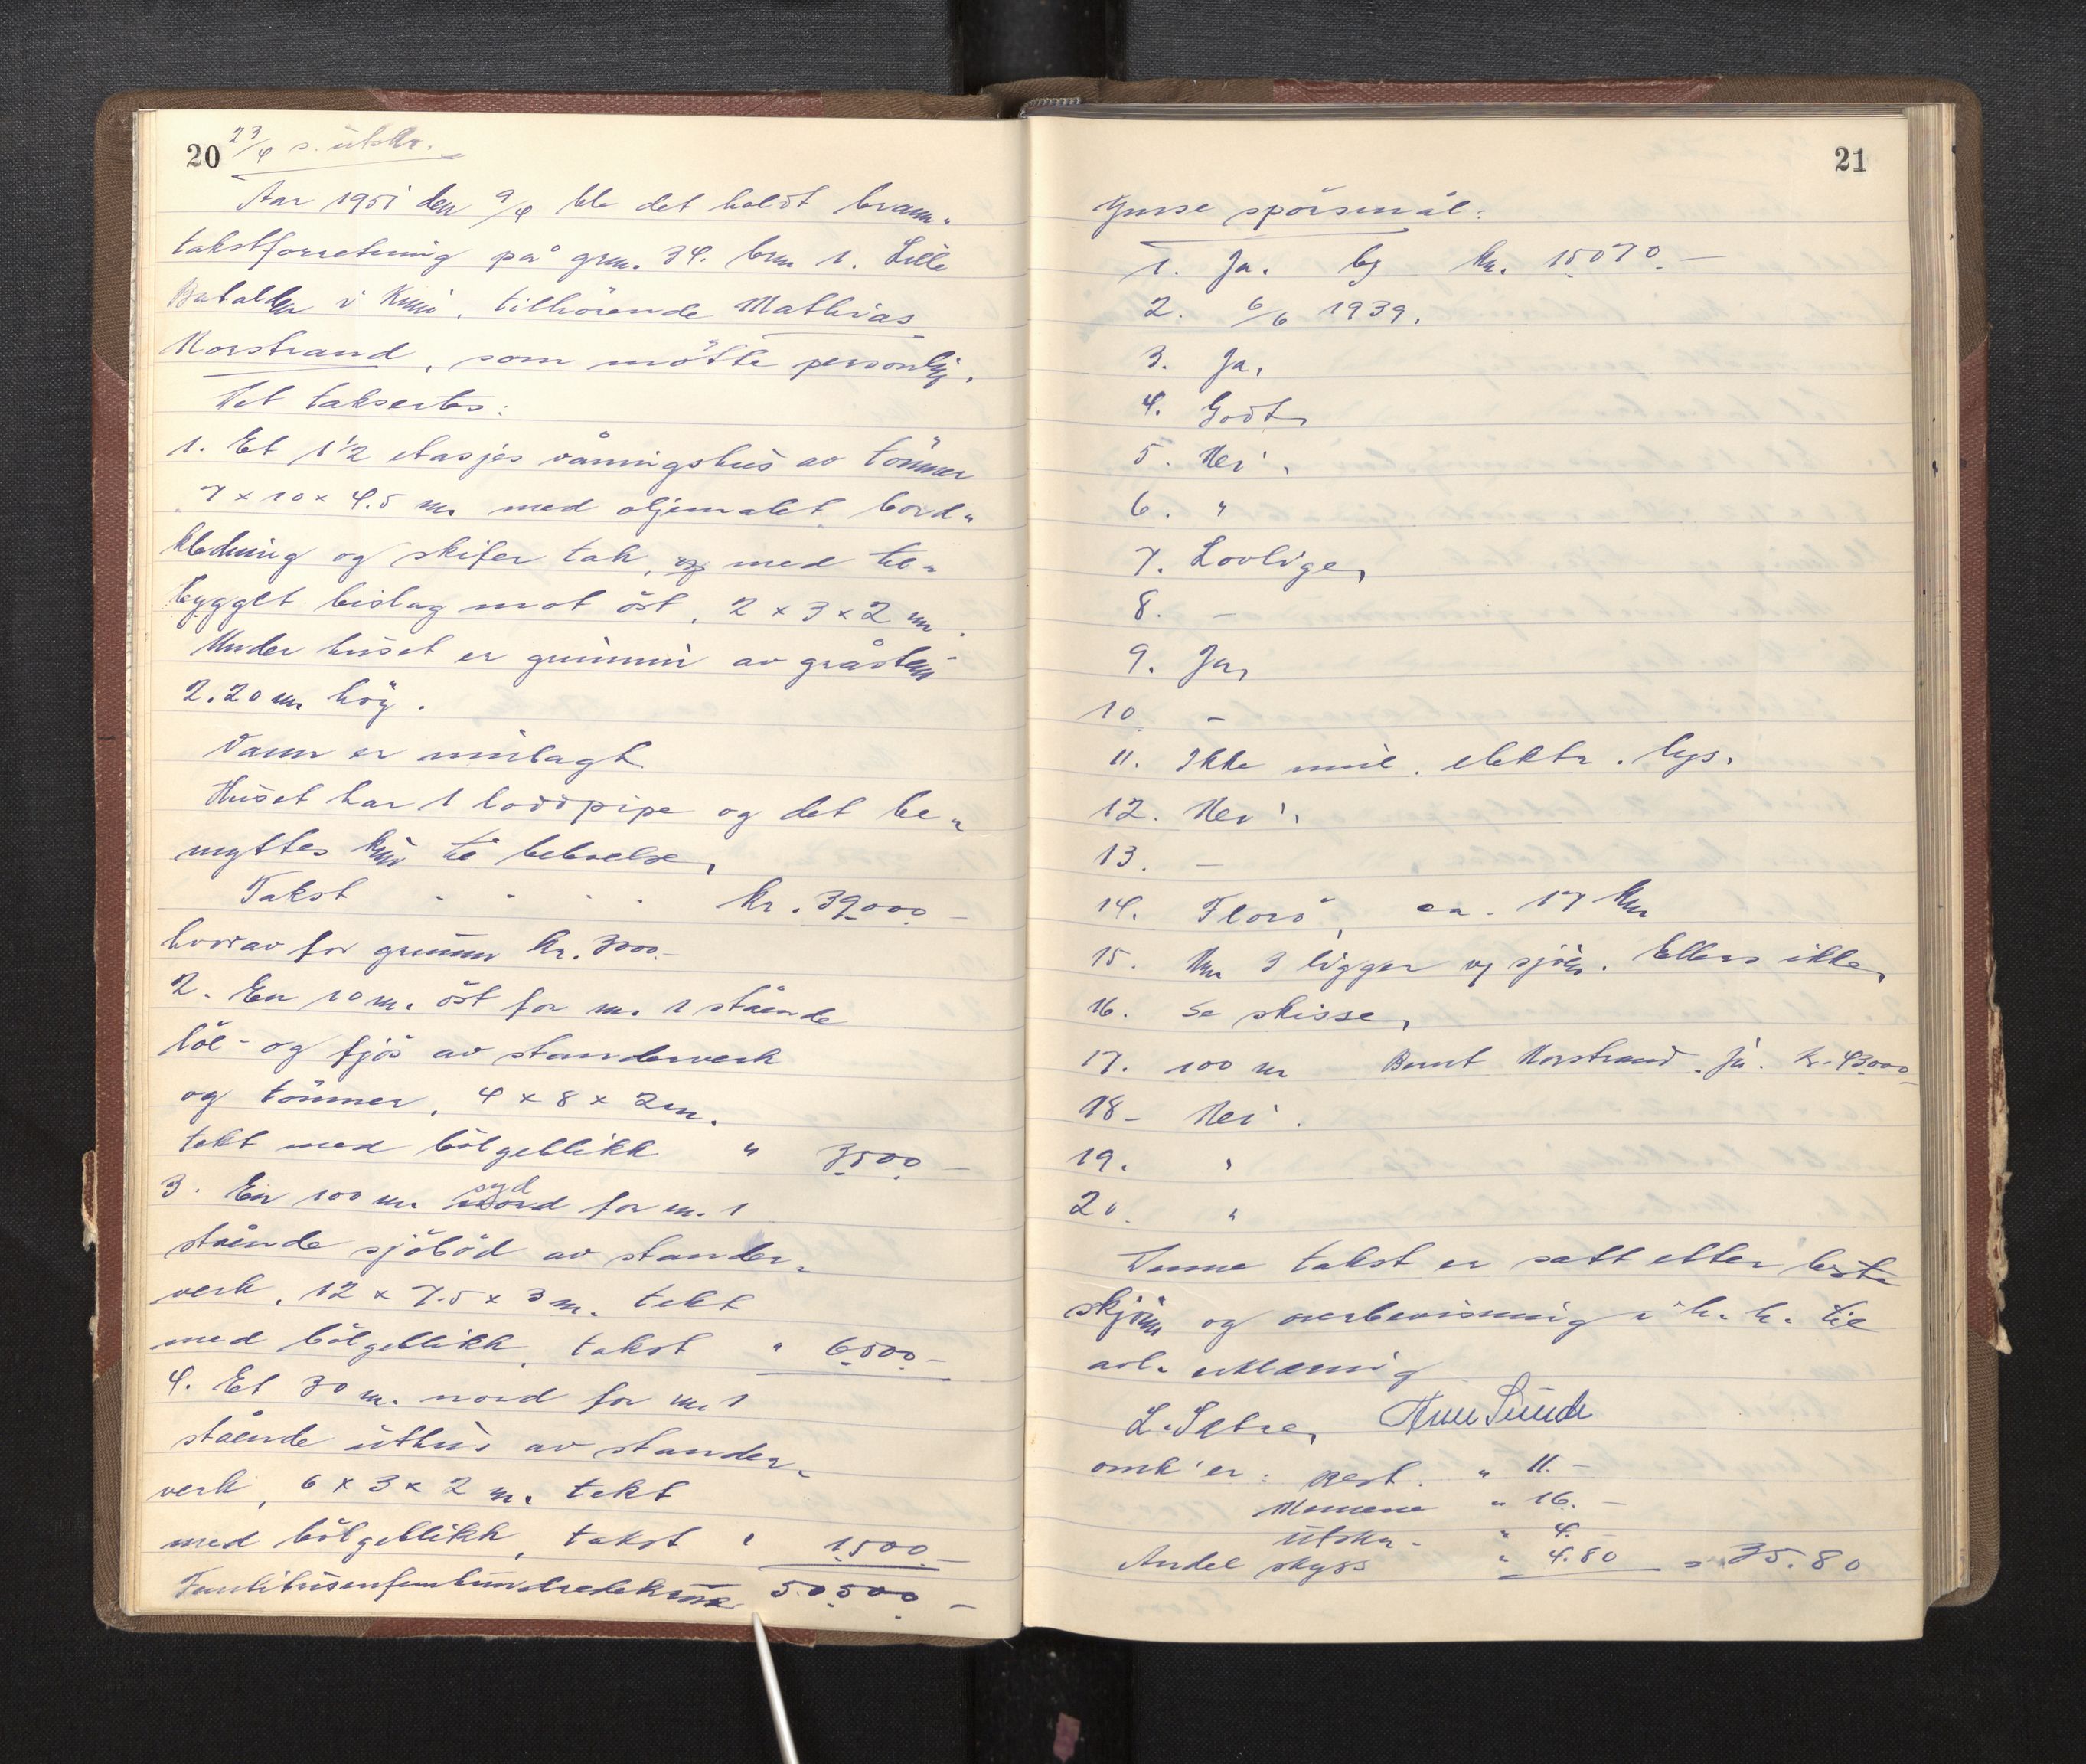 20 23/4 s. utskr.
Aar 1951 den 9/4 ble det holdt brann-
takstforretning på gnr. 34. bnr 1. Lille
Batalden i Kinn, tilhörende Mathias
Norstrand, som mötte personlig.
Det taksertes:
1. Et 1½ etasjes våningshus av tömmer
7 x 10 x 4.5 m. med oljemalet bord-
kledning og skifer tak, med til-
bygget bislag mot öst, 2 x 3 x 2 m.
Under huset er grunnmur av gråsten
2.20 m. höy.
Vann er innlagt
Huset har 1 loddpipe og det be-
nyttes kun til beboelse,
Takst . . . . kr. 39000 –
hvorav for grunnm kr. 3000.–
2. En 10 m. öst for nr. 1 stående
löe- og fjös av standerverk
og tömmer, 4 x 8 x 2 m.
tekt med bölgeblikk " 3500 –
3. En 100 m. syd for nr. 1
stående sjöbod av stander-
verk, 12 x 7.5 x 3 m. tekt
med bölgeblikk, takst " 6500 –
4. Et 30 m. nord for nr. 1
stående uthus av stander-
verk, 6 x 3 x 2 m. tekt
med bölgeblikk, takst " 1500 –
Femtitusenfemhundredekroner 50500 –
21
Ymse spörsmål:
1. Ja. kr. 15070.–
2. 6/6 1939.
3. Ja,
4. Godt,
5. Nei,
6. "
7. Lovlige,
8. –
9. Ja,
10 –
11. Ikke innl. elektr. lys.
12. Nei,
13. –
14. Florö, ca. 17 km
15. Nr. 3 ligger v/ sjöen. Ellers ikke,
16. Se skisse,
17. 100 m Bernt Norstrand. Ja. kr. 43000 –
18 – Nei.
19. "
20. "
Denne takst er satt etter beste
skjönn og overbevisning i h. h. til
avl. erklæring
L. Sætre, Sunde
omk'er: " 11. –
" 16. –
Utskr. " 4. –
Andel skyss " 4.80 = 35.80